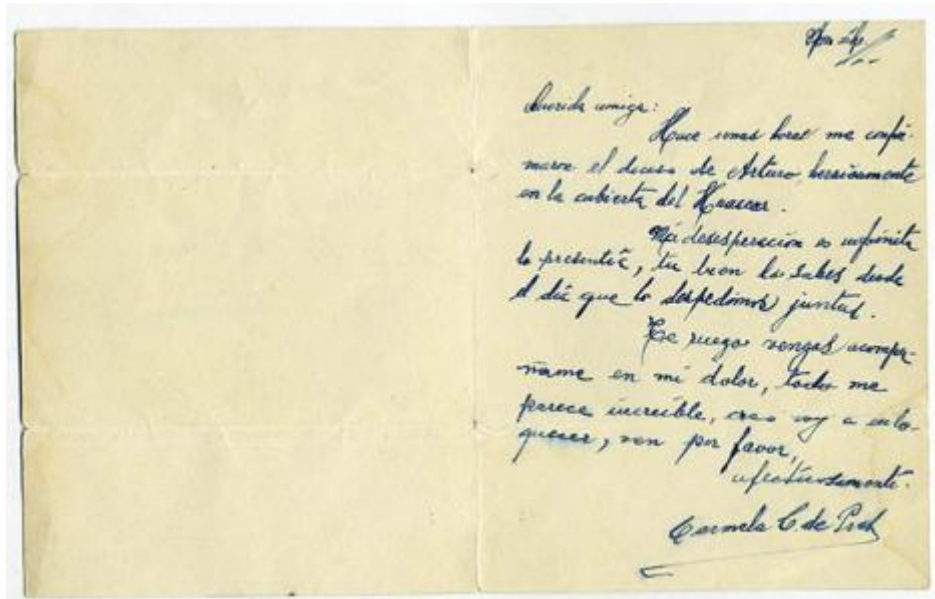 Querida amiga:
Hace unas horas me confir-
maron el deceso de Arturo, heroicamente
en la cubierta del Huascar.
Mi desesperación es infinita
lo presentía, tu bien lo sabes desde
el día que lo despedimos juntas.
Te ruego vengas acompa-
ñarme en mi dolor, todo me
parece increíble, creo voy a enlo-
quecer, ven por favor,
afectuosamente.
Carmela C. de Prat